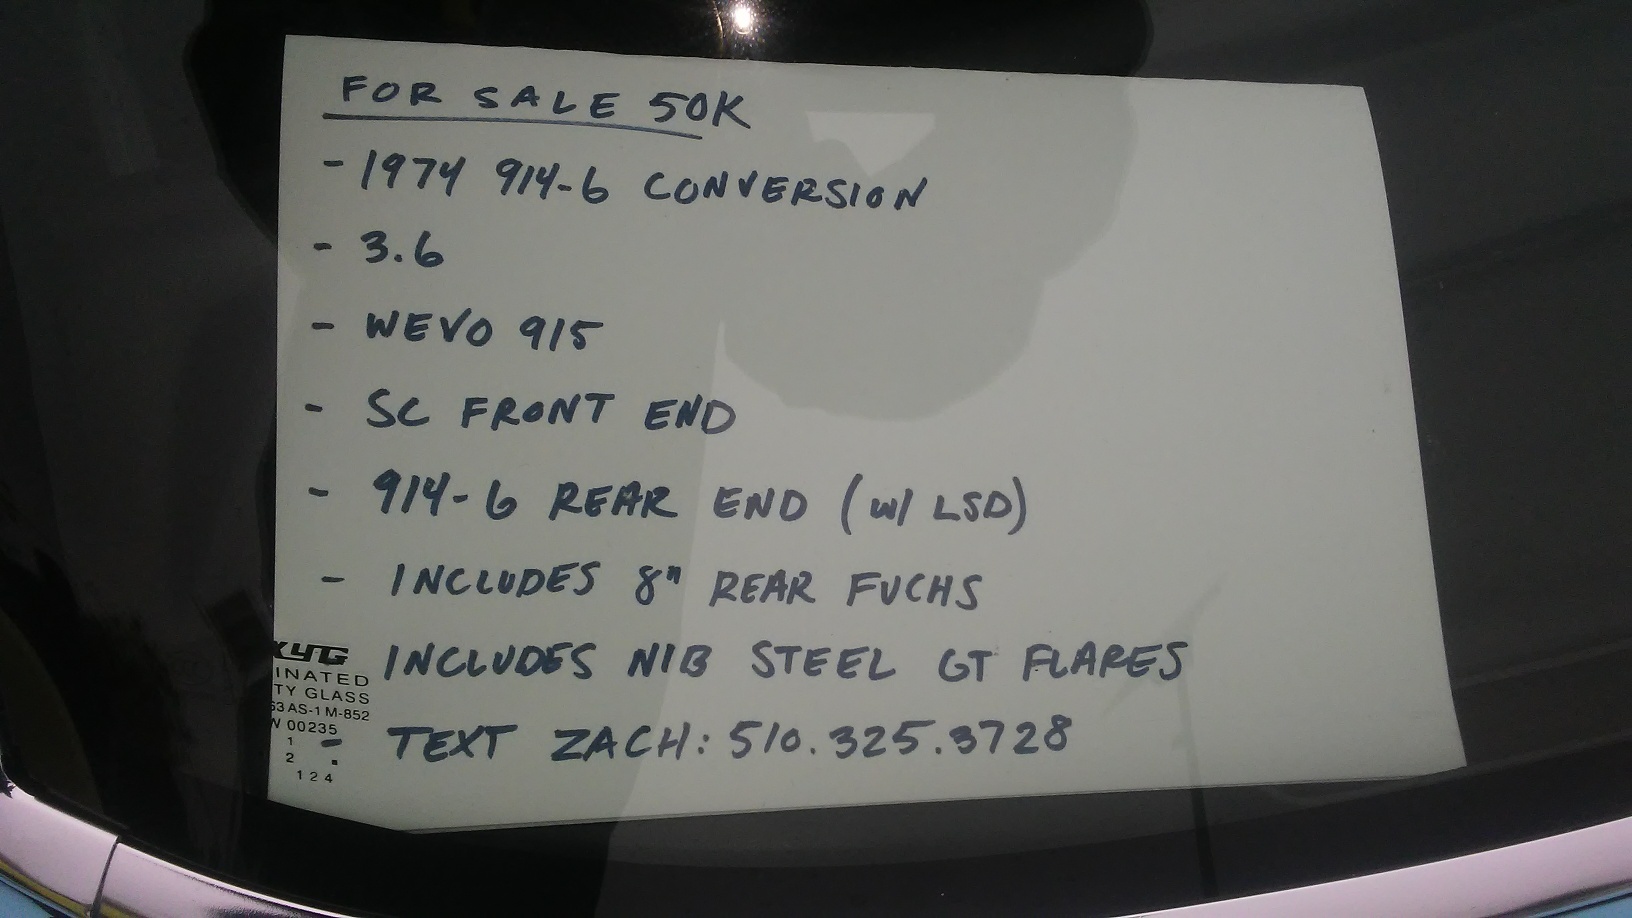 FOR SALE 50K
- 1974 914-6 CONVERSION
- 3.6
- WEVO 915
- SC FRONT END
- 914-6 REAR END (w/ LSD)
- INCLUDES 8" REAR FUCHS
INCLUDES NIB STEEL GT FLARES
- TEXT ZACH: 510.325.3728
INATED
TY GLASS
53 AS-1 M-852
W 00235
1
2 .
124